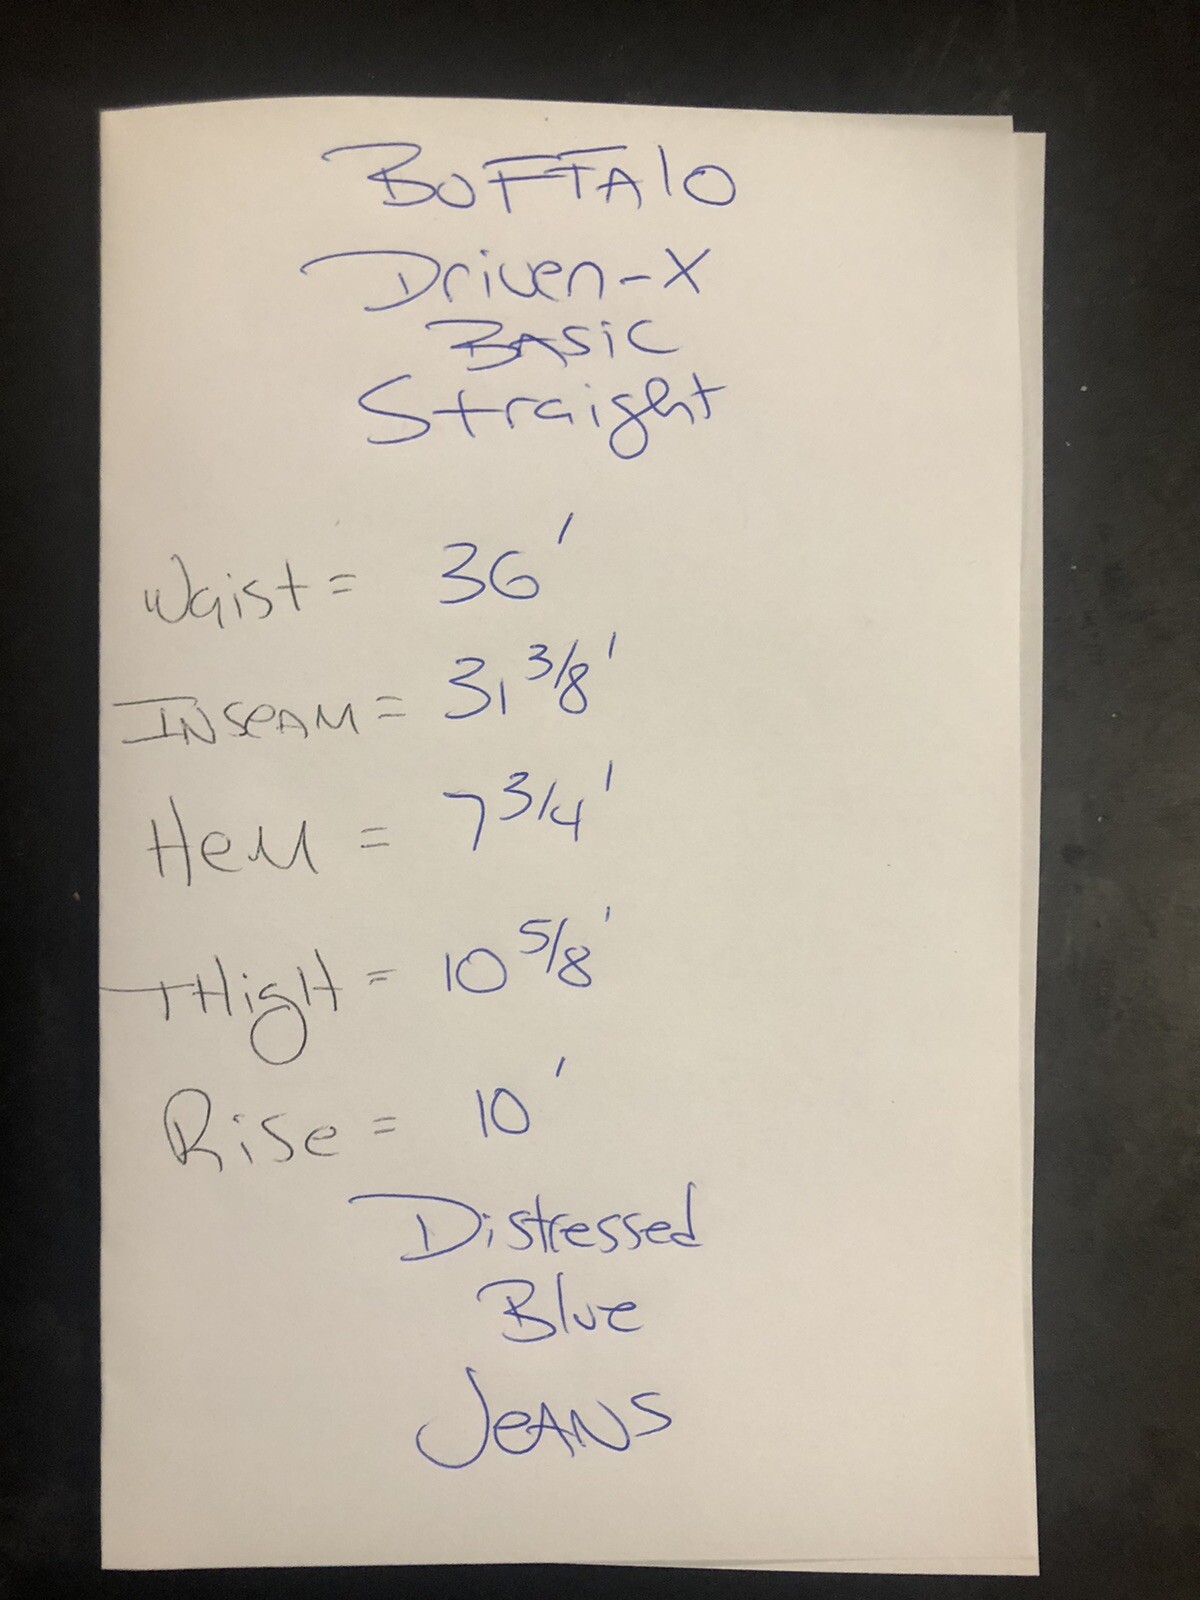 BUFFAlO
Driven-X
BASiC
Straight
Waist = 36'
INSeAM = 31 3/8'
HeM = 7 3/4'
THigH = 10 5/8'
RiSe = 10'
Distressed
Blue
JeANS